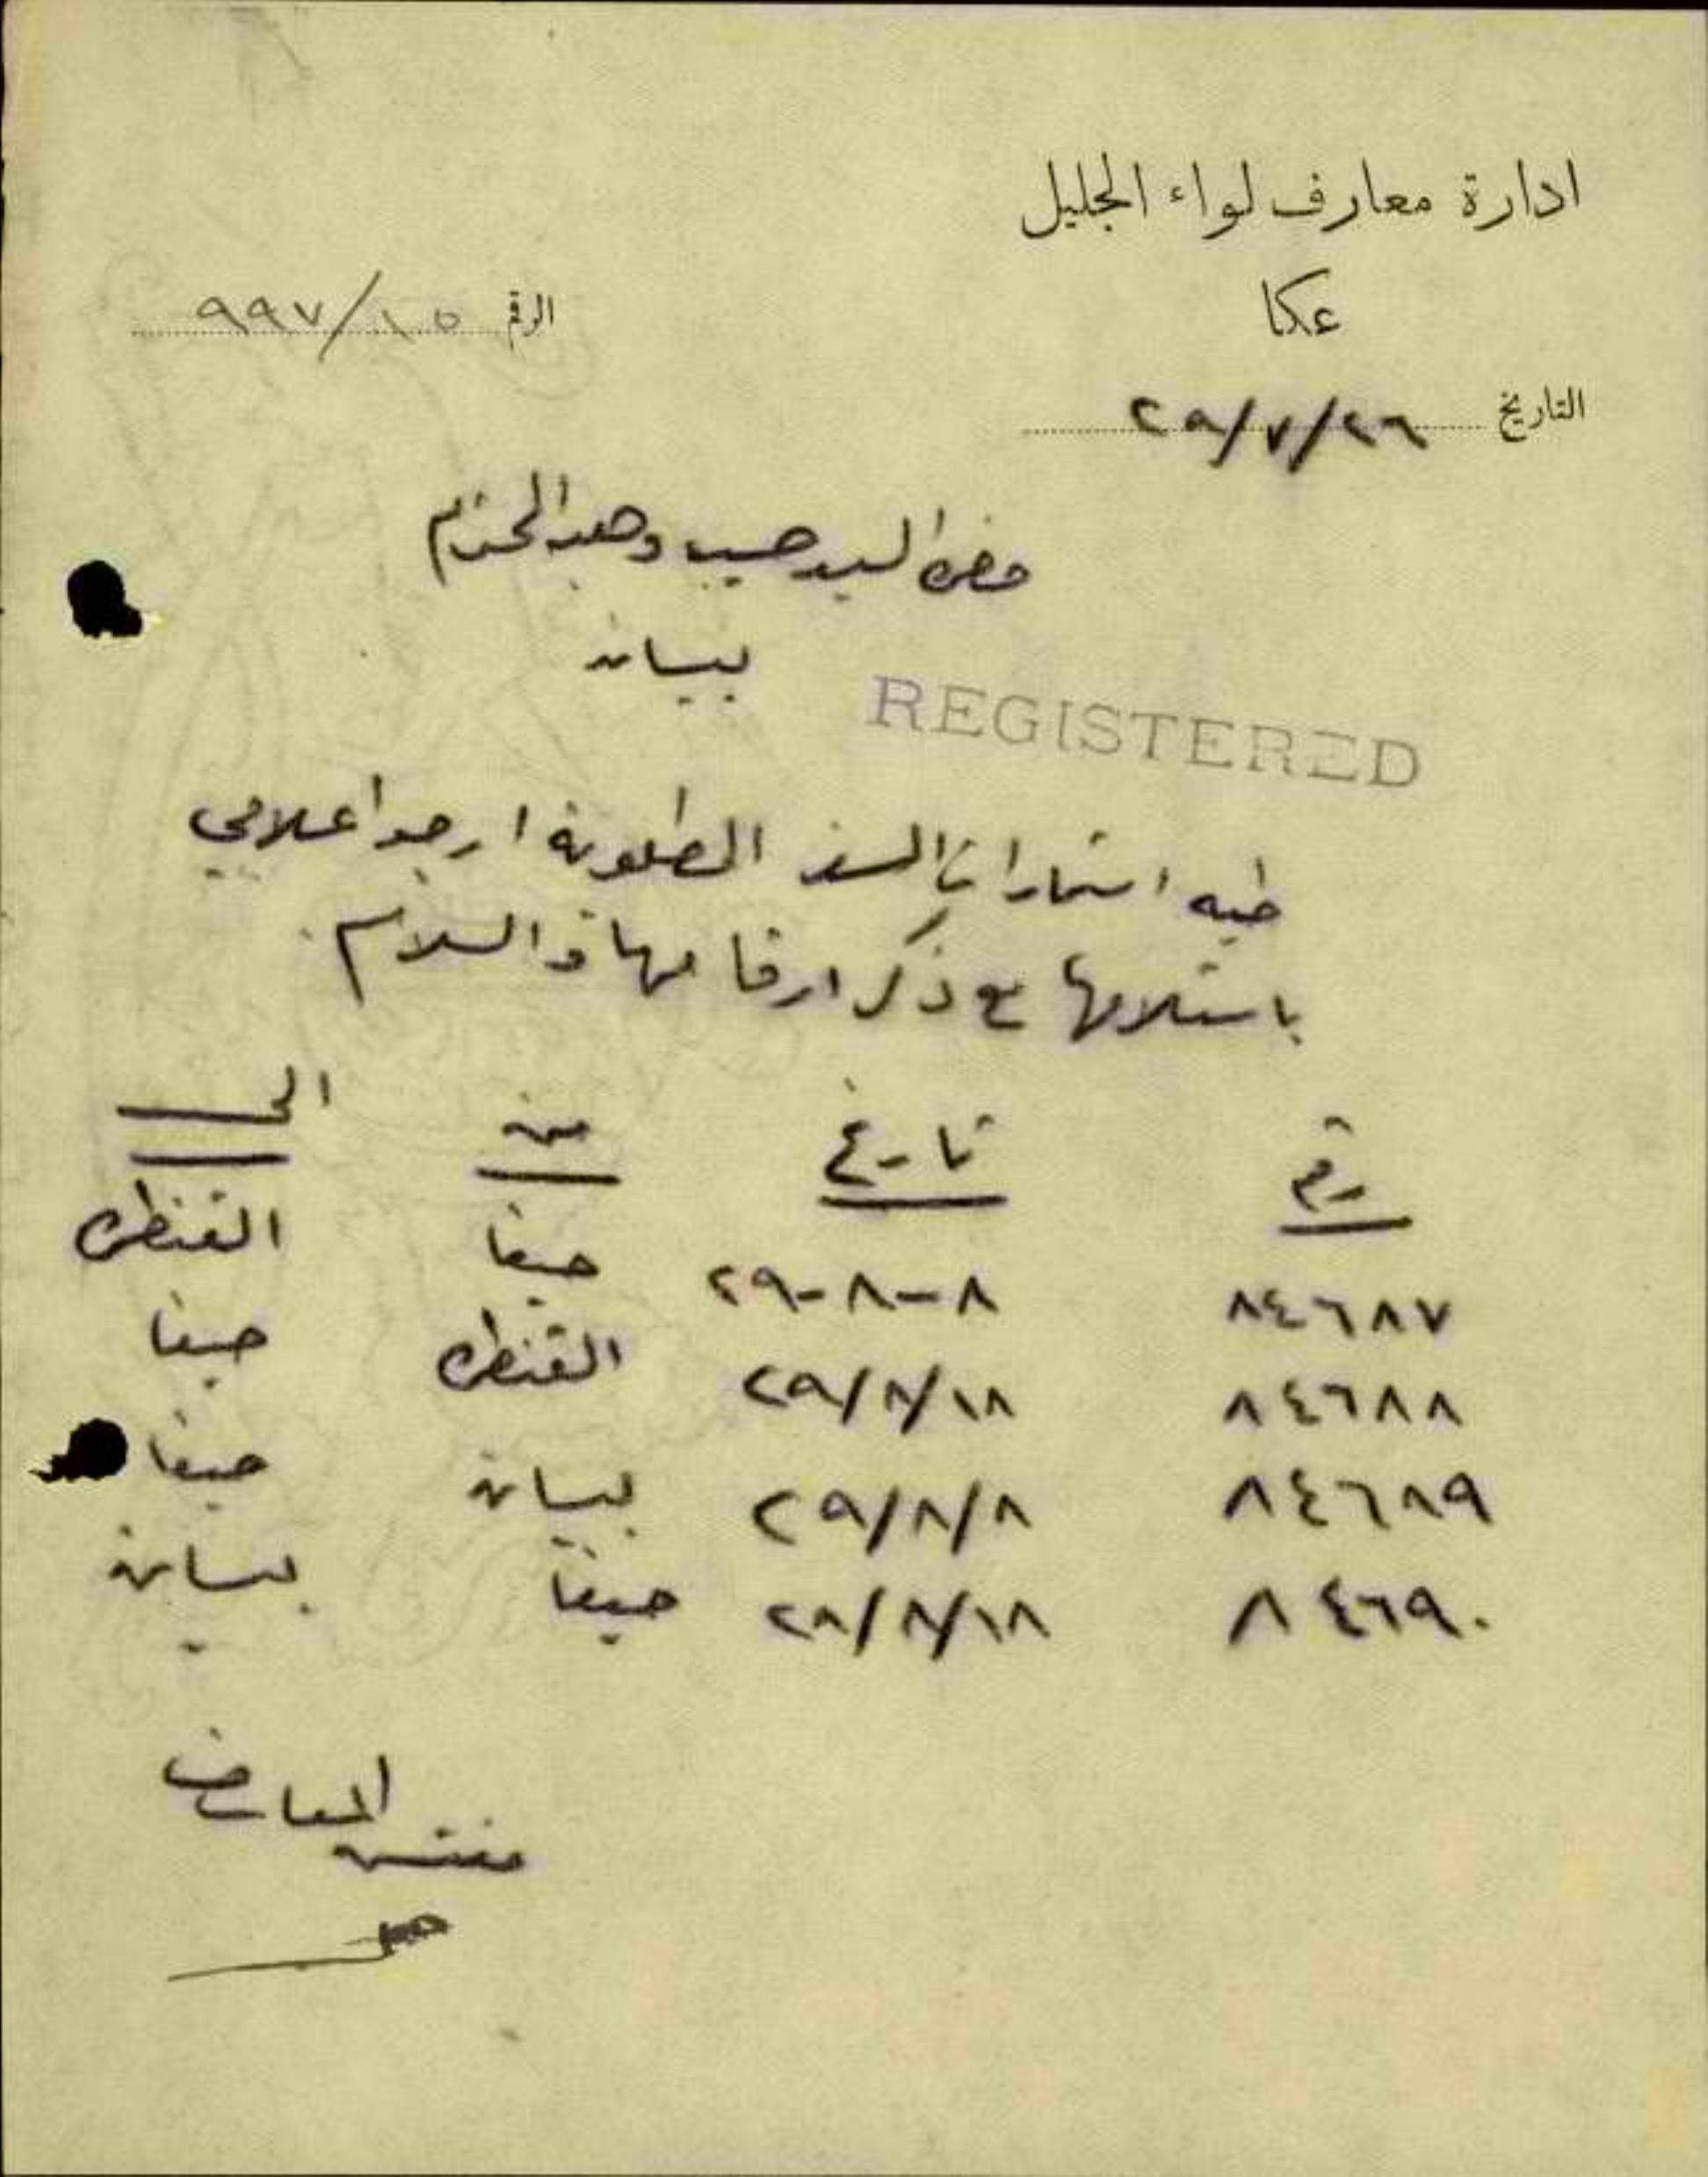 ادارة معارف لواء الجليل
عكا
الرقم ٩٩٧/١٥
التاريخ ٢٩/٧/٢٦
حضرة السيد حبيب وهبه المحترم
بيسان
REGISTERED
طيه استمارات السفر المطلوبة ارجو اعلامي
باستلامها مع ذكر ارقامها والسلام
رقم تاريخ من الى
٨٤٦٨٧ ٢٩-٨-٨ حيفا القنطره
٨٤٦٨٨ ٢٩/٨/١٨ القنطره حيفا
٨٤٦٨٩ ٢٩/٨/٨ بيسان حيفا
٨٤٦٩٠ ٢٨/٨/١٨ حيفا بيسان
مفتش المعارف